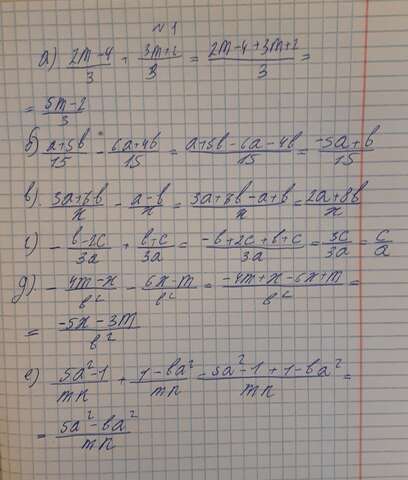 №1
а) (2m-4)/3 + (3m+2)/3 = (2m-4+3m+2)/3 =
= (5m-2)/3
б) (a+5b)/15 - (6a+4b)/15 = (a+5b-6a-4b)/15 = (-5a+b)/15
в). (3a+7b)/x - (a-b)/x = (3a+7b-a+b)/x = (2a+8b)/x
г) - (b-2c)/3a + (b+c)/3a = (-b+2c+b+c)/3a = 3c/3a = c/a
д). - (4m-x)/b² - (6x-m)/b² = (-4m+x-6x+m)/b² =
= (-5x-3m)/b²
е) (5a²-1)/mn + (1-ba²)/mn = (5a²-1+1-ba²)/mn =
= (5a²-ba²)/mn